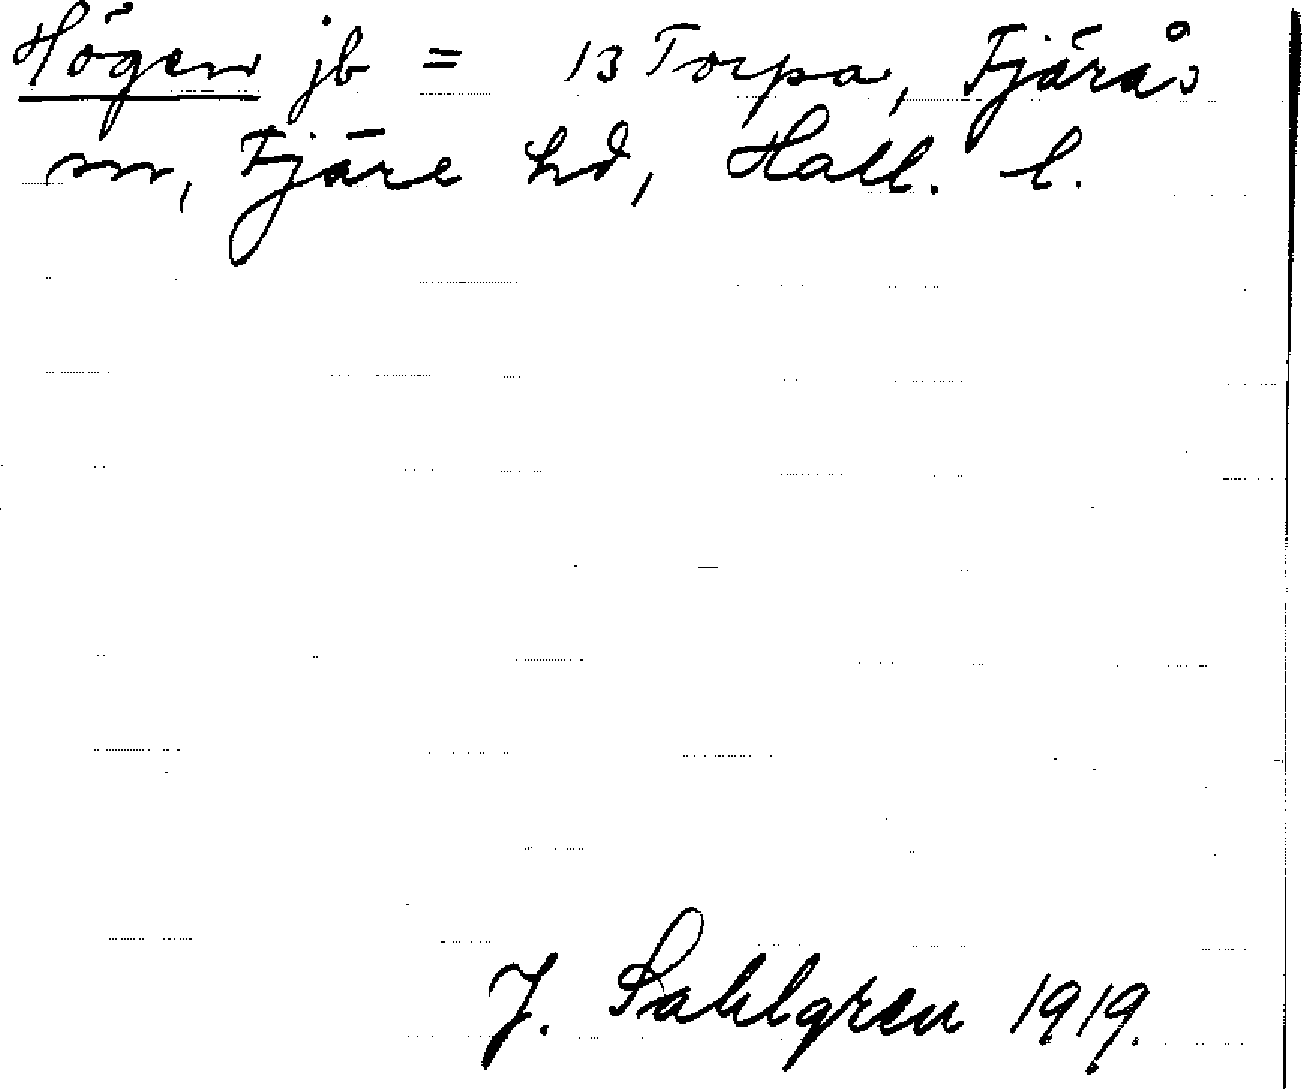 Högen jb = 13 Torpa, Fjärås
sn, Fjäre hd, Hall. l.
J. Sahlgren 1919.